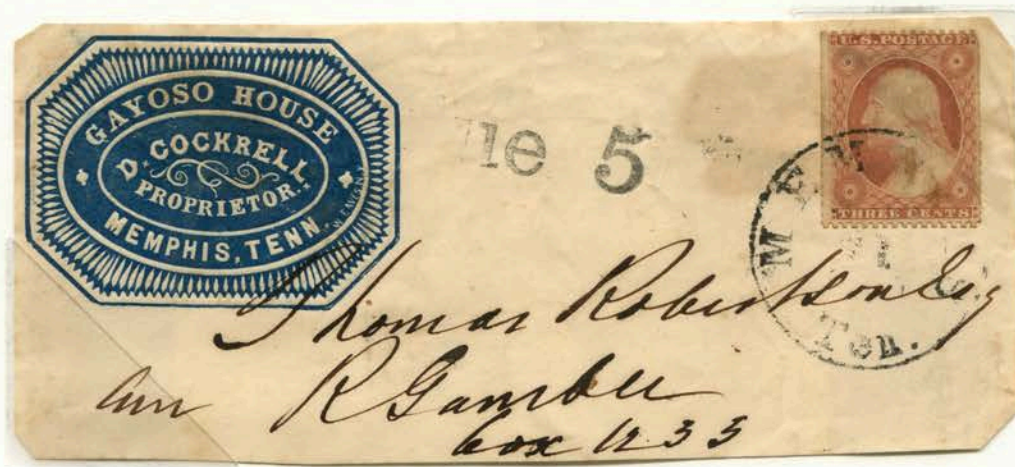 GAYOSO HOUSE
D COCKRELL
PROPRIETOR.
MEMPHIS, TENN.
5
U.S. POSTAGE
THREE CENTS
MEM
Ten.
Thomas Robertson Esq
R Gamble
box 1233